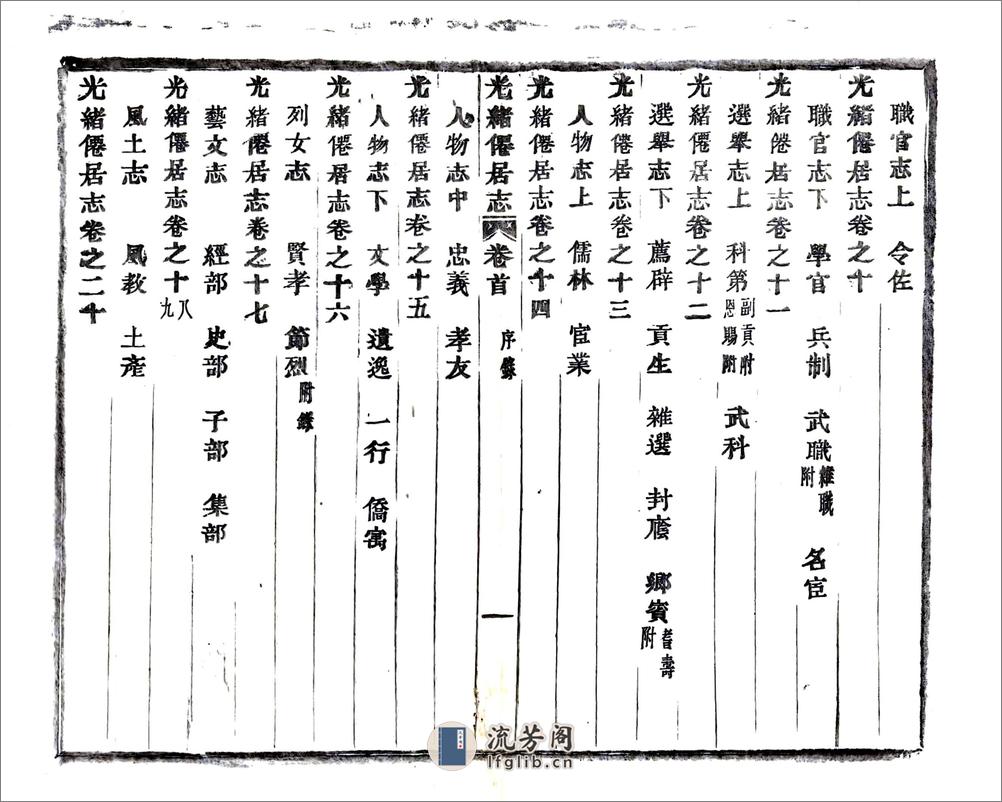 職官志上 令佐
光緒僊居志卷之十
職官志下 學官 兵制 武職雜職附 名宦
光緒僊居志卷之十一
選舉志上 科第副貢附恩賜附 武科
光緒僊居志卷之十二
選舉志下 薦辟 貢生 雜選 封廕 鄉賓耆壽附
光緒僊居志卷之十三
人物志上 儒林 宦業
光緒僊居志卷之十四
光緒僊居志 卷首 序錄 一
人物志中 忠義 孝友
光緒僊居志卷之十五
人物志下 文學 遺逸 一行 僑寓
光緒僊居志卷之十六
列女志 賢孝 節烈附錄
光緒僊居志卷之十七
藝文志 經部 史部 子部 集部
光緒僊居志卷之十八九
風土志 風教 土產
光緒僊居志卷之二十
流芳阁
lfglib.cn